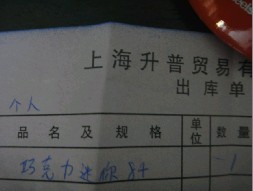 上海升普贸易有
出库单
个人
品名及规格 单位 数量
巧克力迷你 1